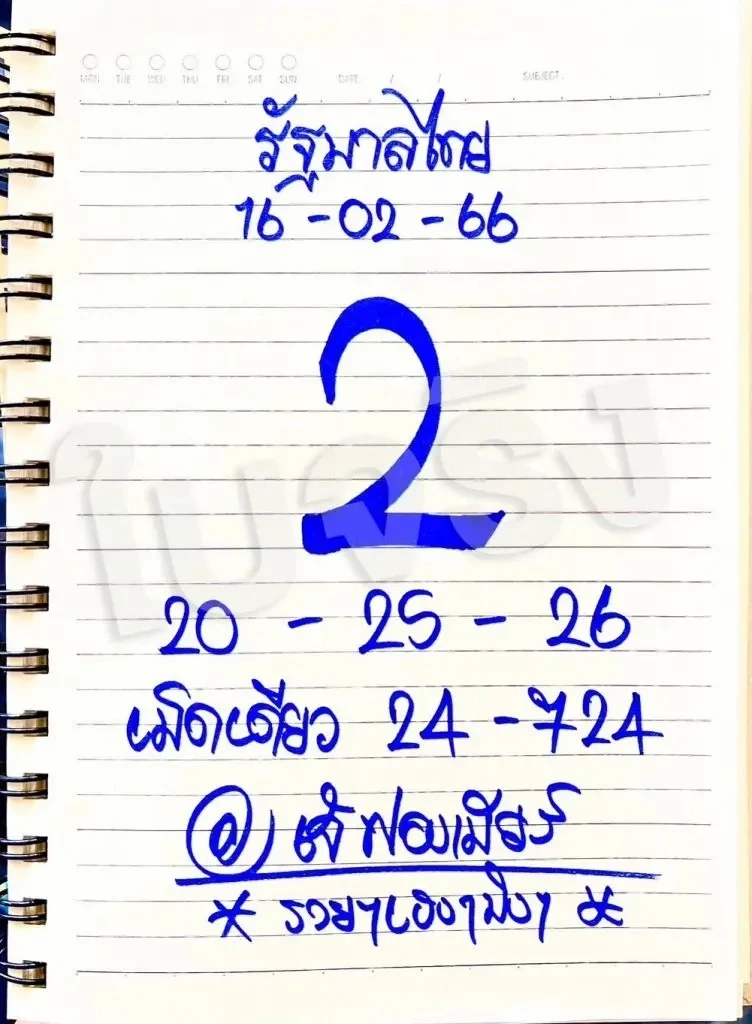 MON TUE WED THU FRI SAT SUN DATE / / SUBJECT
รัฐบาลไทย
16 - 02 - 66
2
ใบจริง
20 - 25 - 26
เม็ดเดียว 24 - 724
เจ๊ฟองเบียร์
* รวยๆเฮงๆปังๆ *